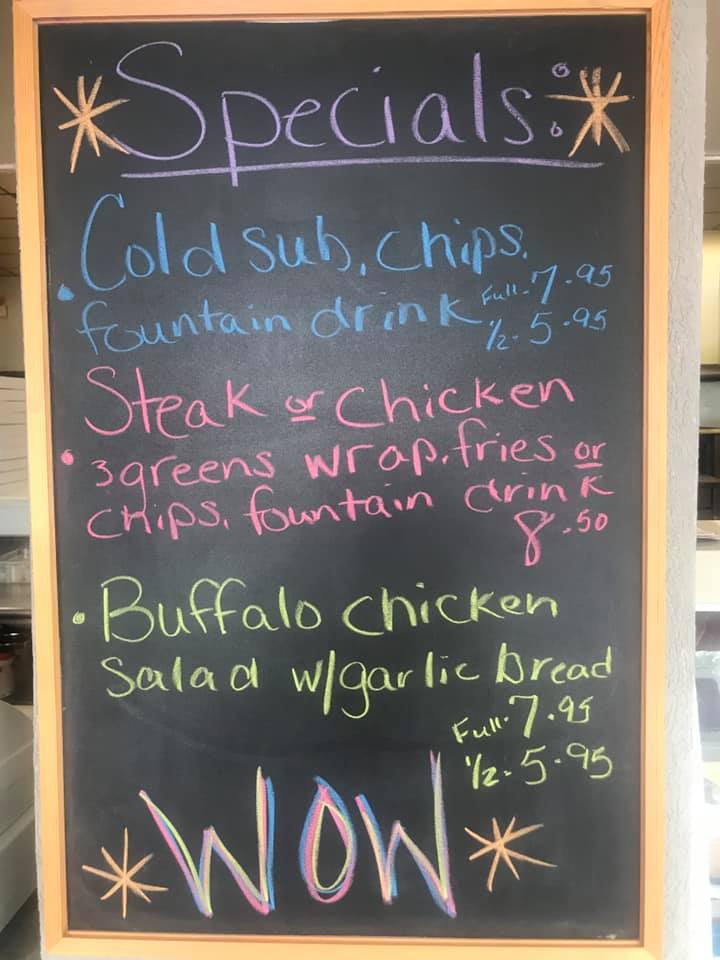 Specials:
• Cold sub, chips,
fountain drink Full. 7.95
1/2. 5.95
Steak or chicken
• 3 greens wrap, fries or
chips, fountain drink
8.50
• Buffalo chicken
Salad w/garlic bread
Full. 7.95
1/2. 5.95
WOW